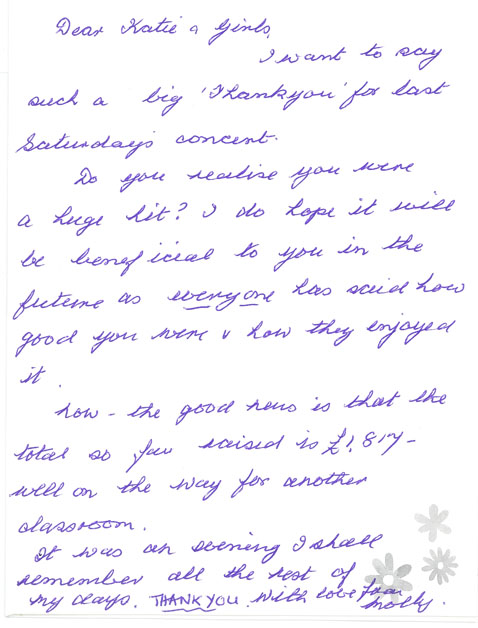 Dear Katie & Girls,
I want to say
such a big 'Thankyou' for last
Saturday's concert.
Do you realise you were
a huge hit? I do hope it will
be beneficial to you in the
future as everyone has said how
good you were & how they enjoyed
it.
Now - the good news is that the
total so far raised is £1,817 -
well on the way for another
classroom.
It was an evening I shall
remember all the rest of
my days. THANK YOU. With love from
Molly.